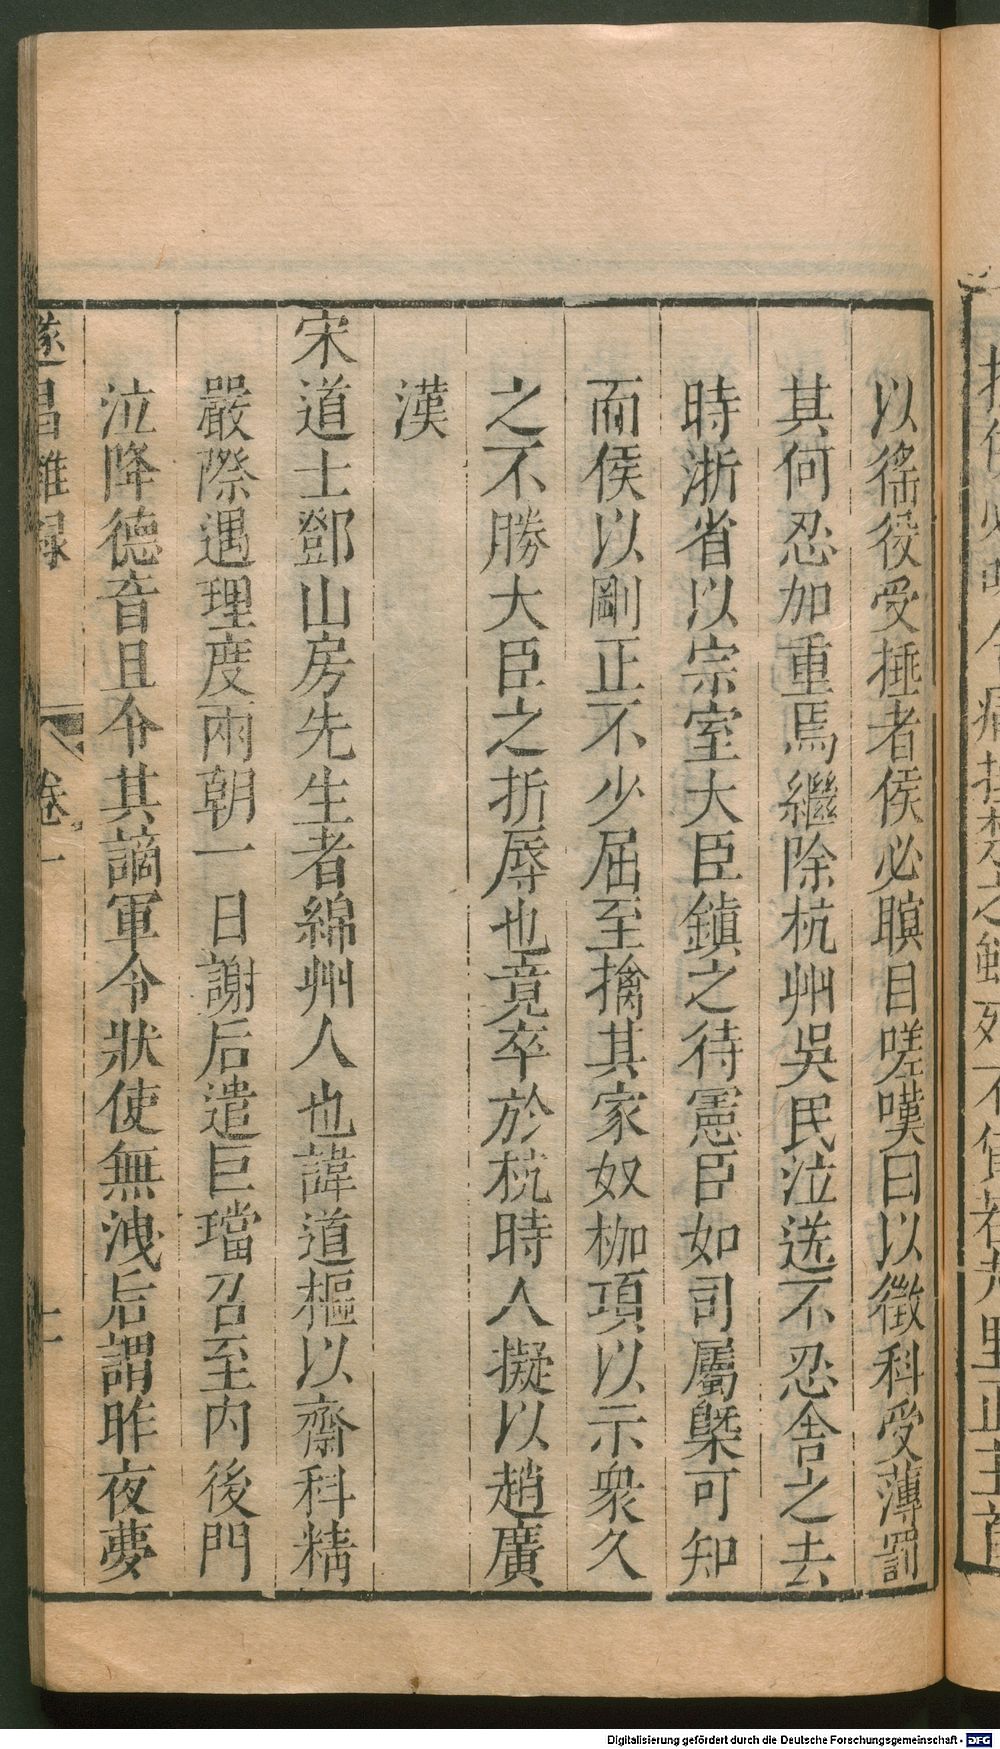 以徭役受捶者侯必瞑目嗟嘆曰以徵科受薄罰
其何忍加重焉繼除杭州吳民泣送不忍舍之去
時浙省以宗室大臣鎮之待憲臣如司屬槩可知
而侯以剛正不少屈至擒其家奴枷項以示衆久
之不勝大臣之折辱也竟卒於杭時人擬以趙廣
漢
宋道士鄧山房先生者綿州人也諱道樞以齋科精
嚴際遇理度兩朝一日謝后遣巨璫召至内後門
泣降德音且令其謫軍令狀使無洩后謂昨夜夢
遂昌雜録 卷一
Digitalisierung gefördert durch die Deutsche Forschungsgemeinschaft - DFG